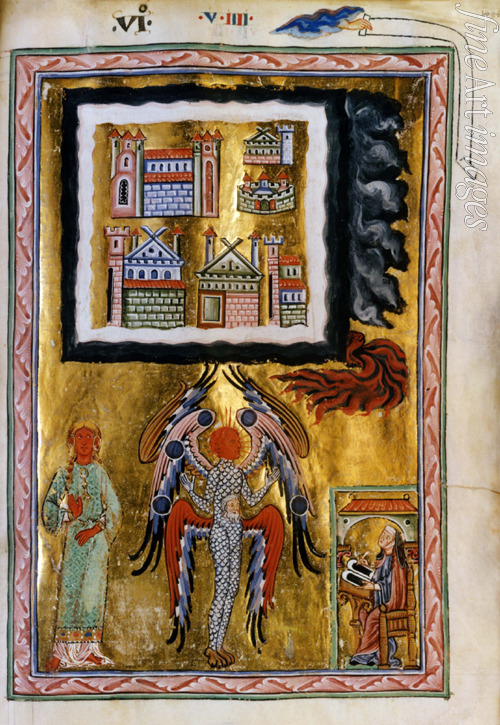 ·VI·
·V·IIII·
fine Art images